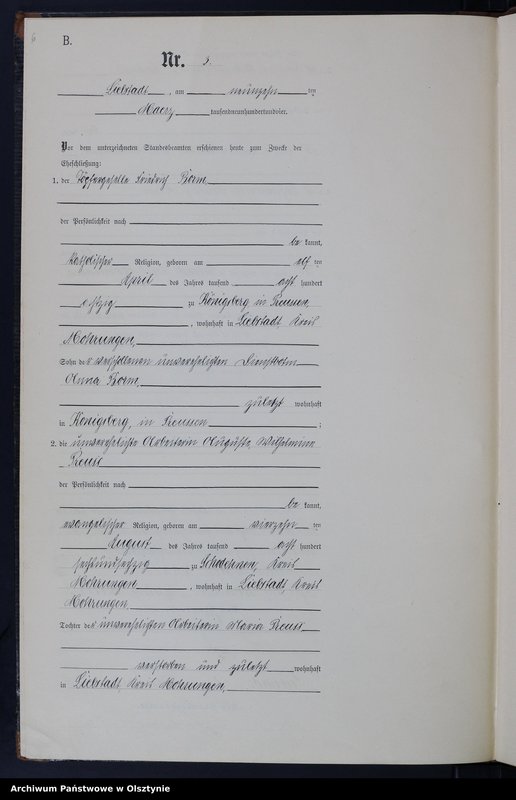 6
B.
Nr. 5.
Liebstadt, am neunzehn ten
Maerz tausendneunhundertundvier.
Vor dem unterzeichneten Standesbeamten erschienen heute zum Zwecke der
Eheschließung:
1. der Töpfergeselle Friedrich
der Persönlichkeit nach
be kannt,
katholischer Religion, geboren am elf ten
April des Jahres tausend acht hundert
achtzig zu Königsberg in Preussen,
, wohnhaft in Liebstadt, Kreis
Mohrungen,
Sohn der verstorbenen unverehelichten Dienstboten
Anna
zuletzt wohnhaft
in Königsberg, in Preussen ;
2. die unverehelichte Arbeiterin Auguste, Wilhelmine
Preuss
der Persönlichkeit nach
be kannt,
evangelischer Religion, geboren am vierzehn ten
August des Jahres tausend acht hundert
zu Kreis
Mohrungen, wohnhaft in Liebstadt, Kreis
Mohrungen
Tochter der unverehelichten Arbeiterin Maria Preuss
verstorben und zuletzt wohnhaft
in Liebstadt, Kreis Mohrungen,
Archiwum Państwowe w Olsztynie